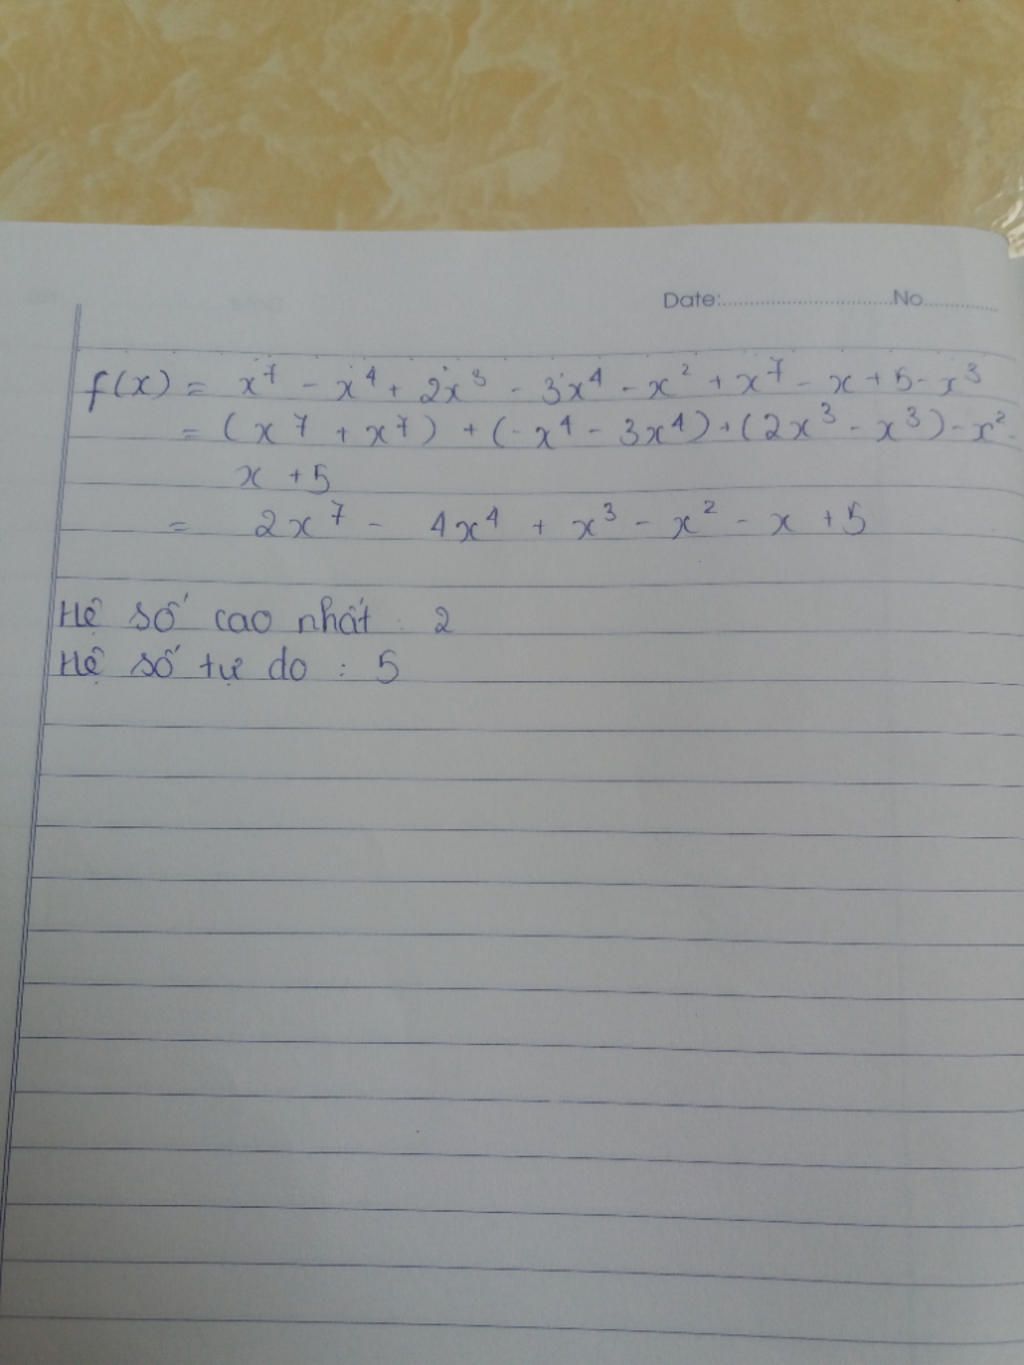 Date:..............................No.............
f(x) = x⁷ - x⁴ + 2x³ - 3x⁴ - x² + x⁷ - x + 5 - x³
= (x⁷ + x⁷) + (-x⁴ - 3x⁴) + (2x³ - x³) - x² -
x + 5
= 2x⁷ - 4x⁴ + x³ - x² - x + 5
Hệ số cao nhất : 2
Hệ số tự do : 5